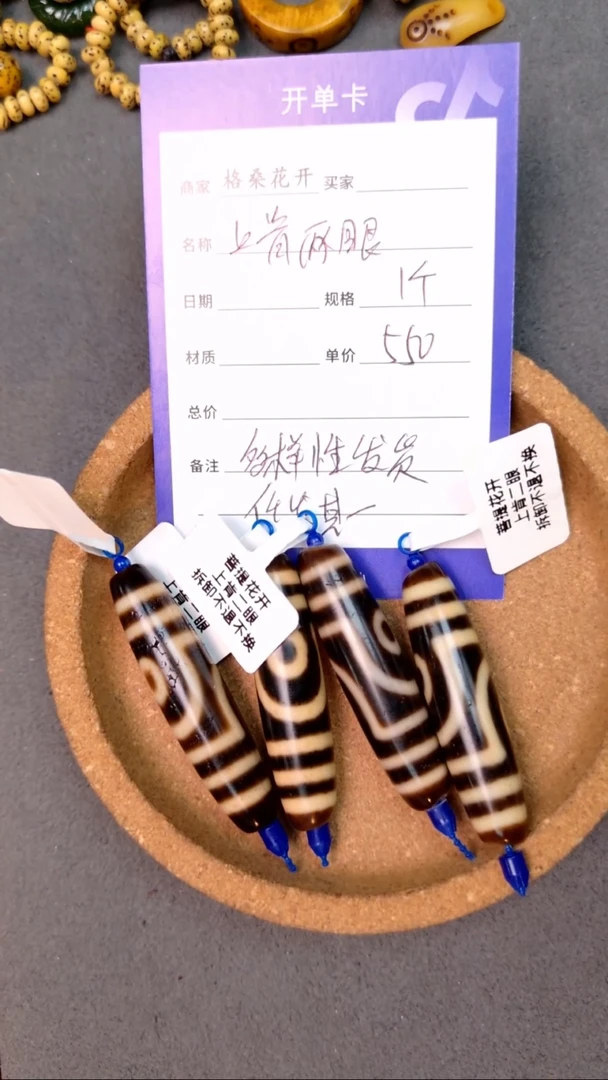 开单卡
商家 格桑花开 买家
名称 上肯两眼
日期 规格 1个
材质 单价 550
总价
备注 多样性发货
任发其一
上肯二眼
格桑花开
上肯二眼
拆卸不退不换
格桑花开
上肯二眼
拆卸不退不换